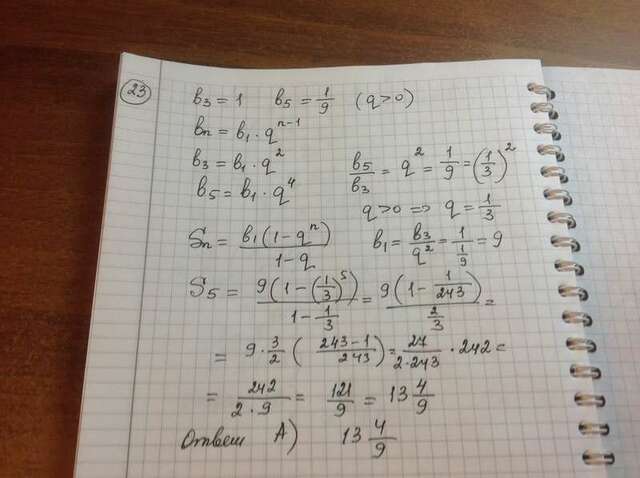 23
b₃ = 1 b₅ = 1/9 (q>0)
bₙ = b₁ · qⁿ⁻¹
b₃ = b₁ · q² b₅/b₃ = q² = 1/9 = (1/3)²
b₅ = b₁ · q⁴ q>0 => q = 1/3
Sₙ = b₁(1-qⁿ)/(1-q) b₁ = b₃/q² = 1/(1/9) = 9
S₅ = 9(1-(1/3)⁵)/(1-1/3) = 9(1-1/243)/(2/3) =
= 9 · 3/2 ((243-1)/243) = 27/(2·243) · 242 =
= 242/(2·9) = 121/9 = 13 4/9
Ответ А) 13 4/9